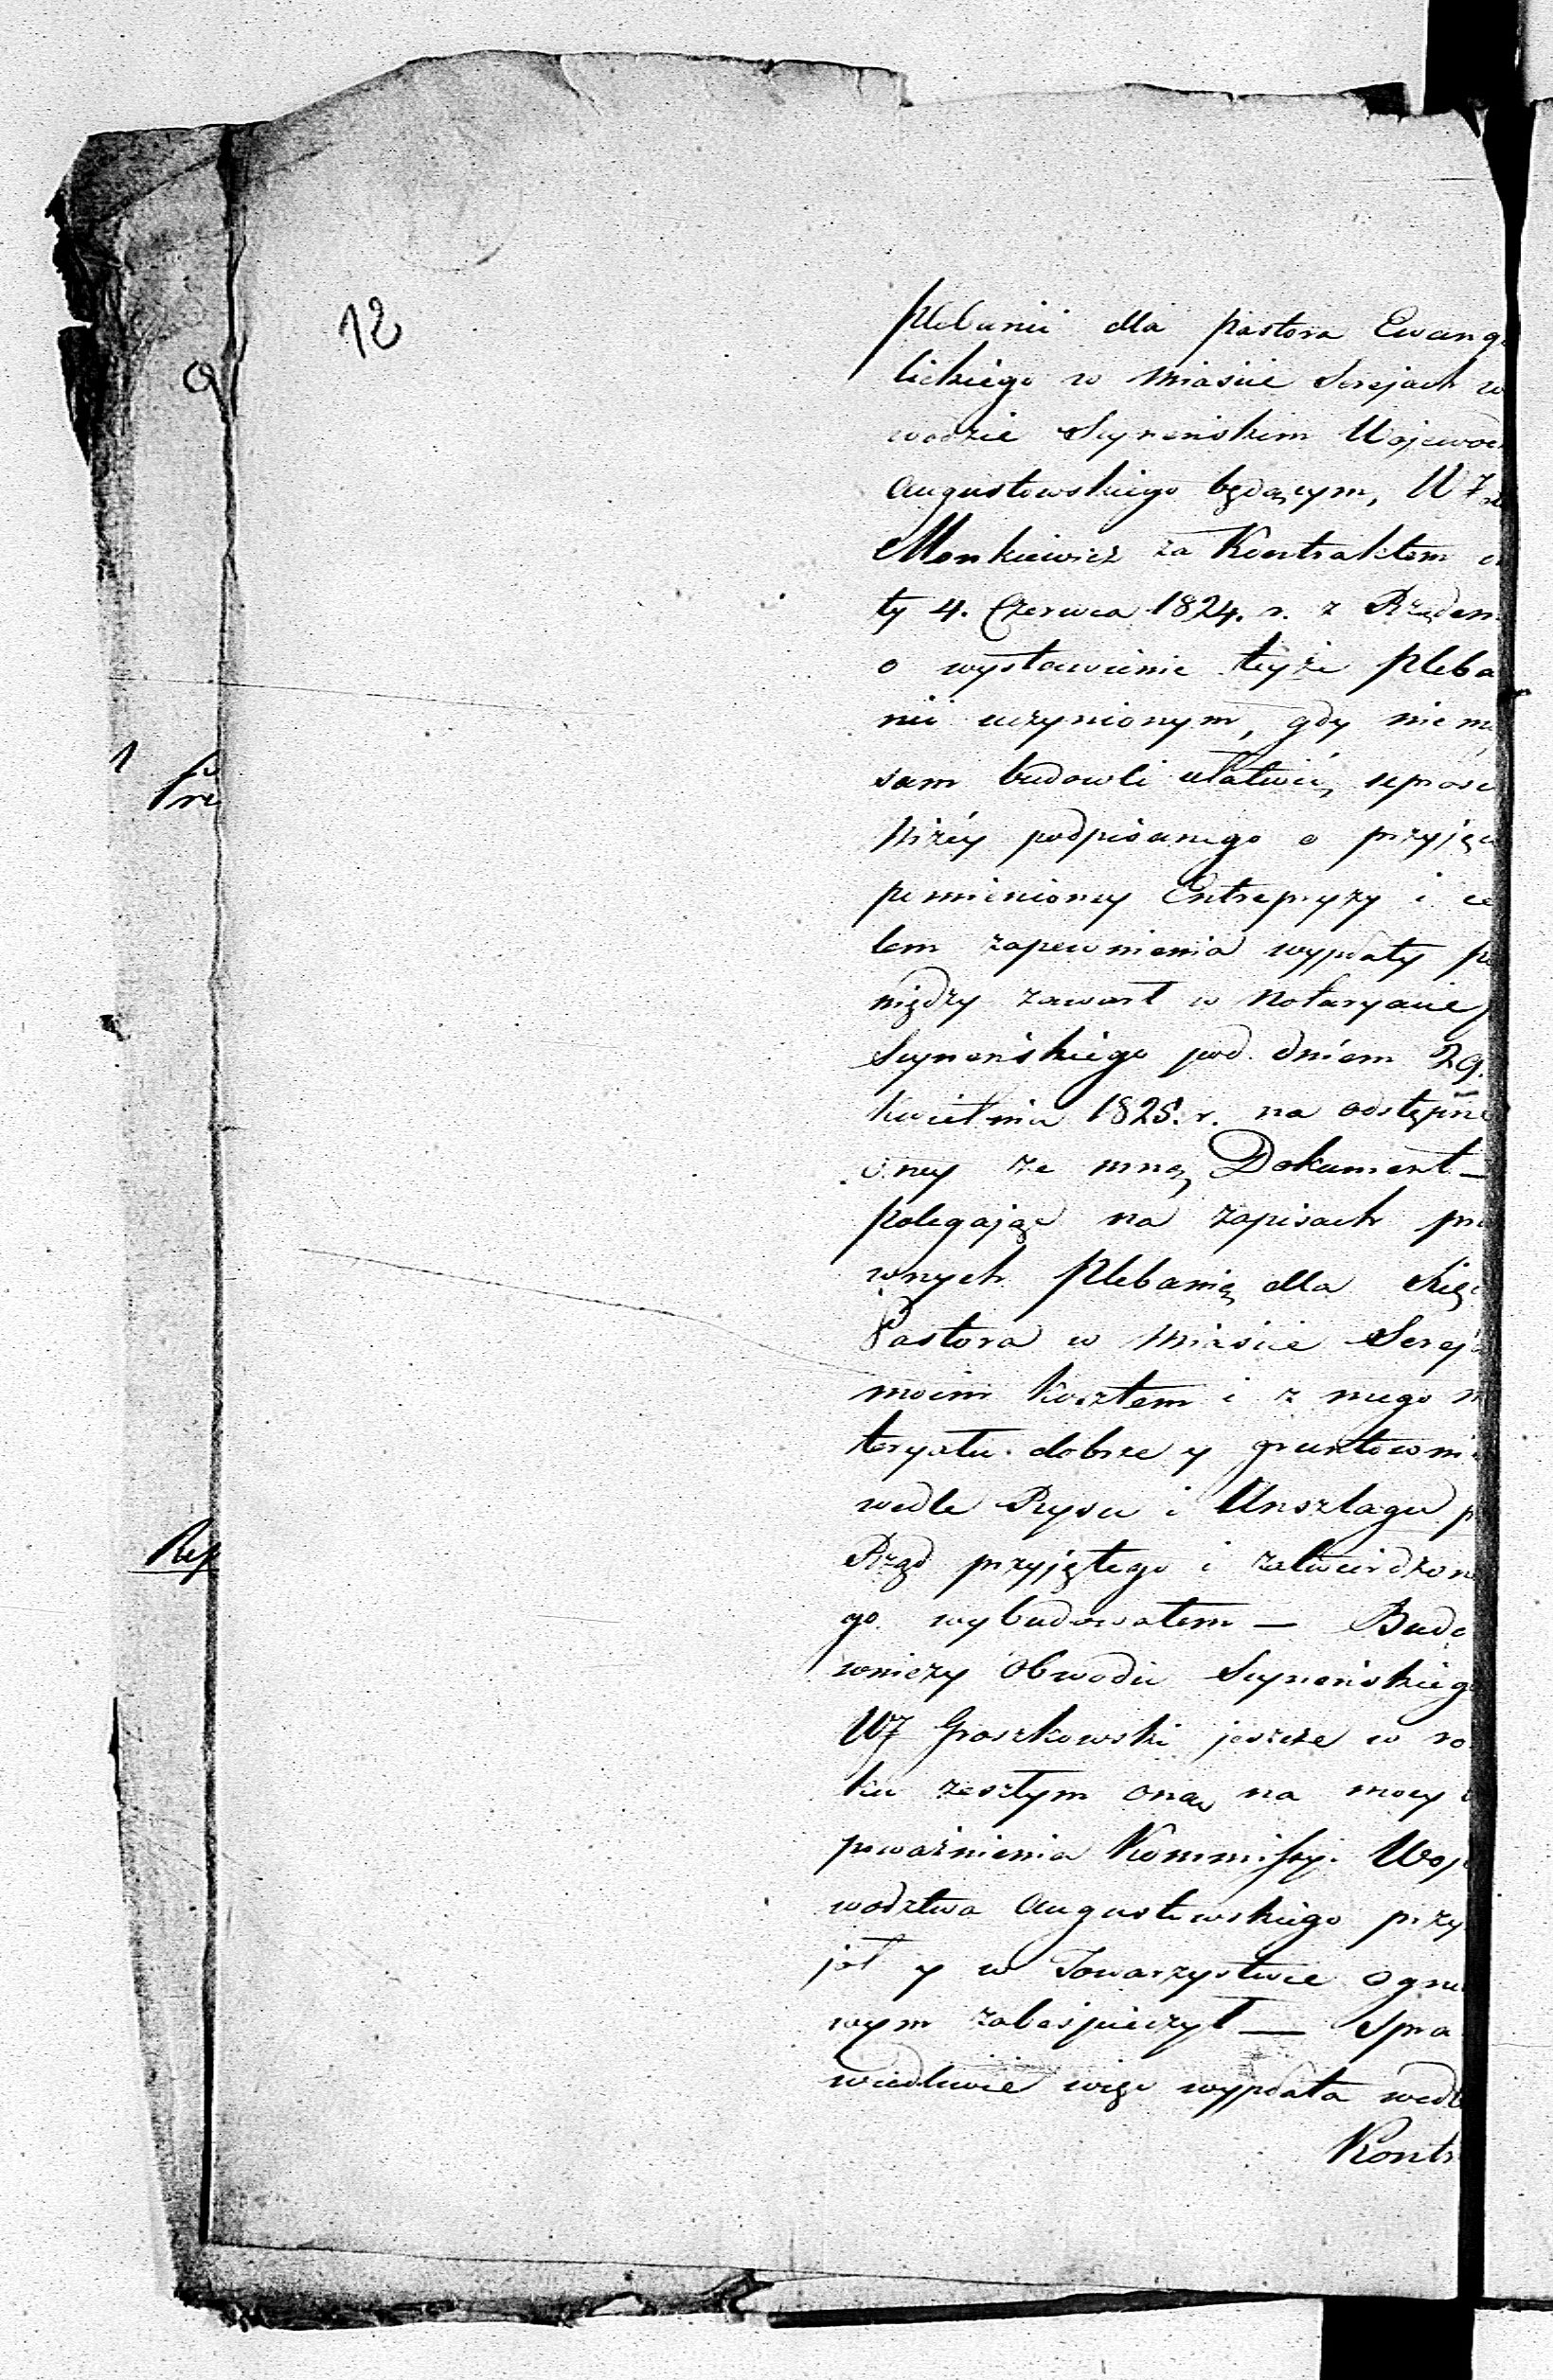 12
Q
plebanii dla pastora Ewang
lickiego w miascie Serejach w
wodzie Seynenskim Wojewod
Augustowskiego będącym, W J
Monkiewicz za Kontraktem
ty 4. Czerwca 1824. r. z Rządem
o wystawienie teyże pleba
nii uczynionym, gdy nie m
sam budowli ułatwić, uprosi
niżéy podpisanego o przyjęci
pomienioney Entrepryzy i ce
lem zapewnienia wypłaty p
niędzy zawarł w Notaryacie
Seynenskiego pod dniem 29.
kwietnia 1825. r. na odstąpne
oney ze mną Dokument —
polegając na zapisach pra
wnych Plebanią dla Xię
Pastora w miascie Sereja
moim kosztem i z mego m
teryału dobrze y gruntowni
wedle Rysu i Anszlagu p
Rząd przyjętego i zatwierdzon
go wybudowałem — Budo
wniczy Obwodu Seynenskiego
WJ Groszkowski jeszcze w ro
ku zeszłym oną na mocy
poważnienia Kommissyi Woje
wodztwa Augustowskiego przy
jął y w Towarzystwie ognio
wym zabespieczył — Spra
wiedliwie więc wypłata wedl
Kontr
1
Rep